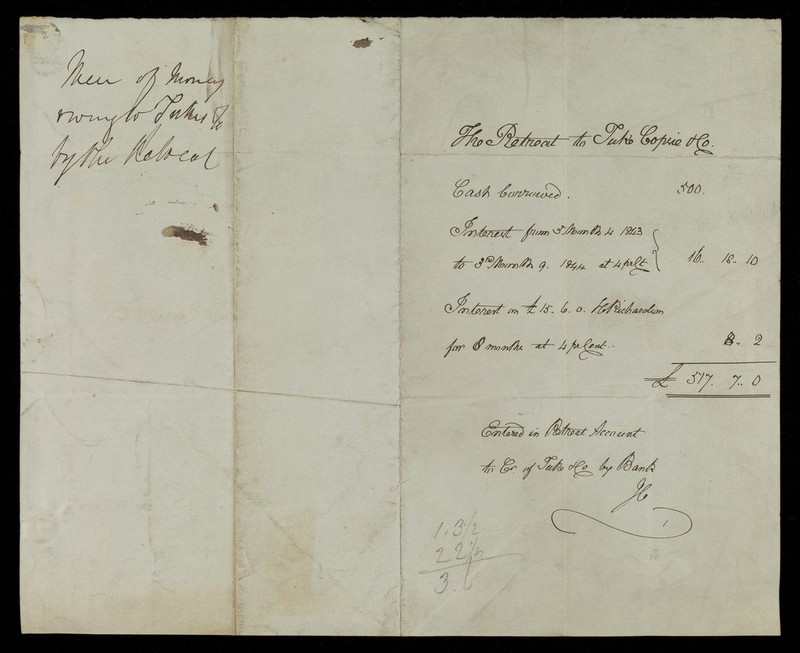 Mem of Money
owing to Tukes & Co
by the Retreat
The Retreat to Tuke Copsie & Co.
Cash borrowed. 500.
Interest from 5 Month 4 1843
to 3rd Month 9. 1844 at 4 pr Ct. 16.. 18.. 10
Interest on £15. 6. 0. H Richardson
for 8 months at 4 pr Cent.. 8.. 2
£ 517. 7.. 0
Entered in Retreat Account
to Cr. of Tuke & Co by Bank
1.3/2
2 2/2
3.